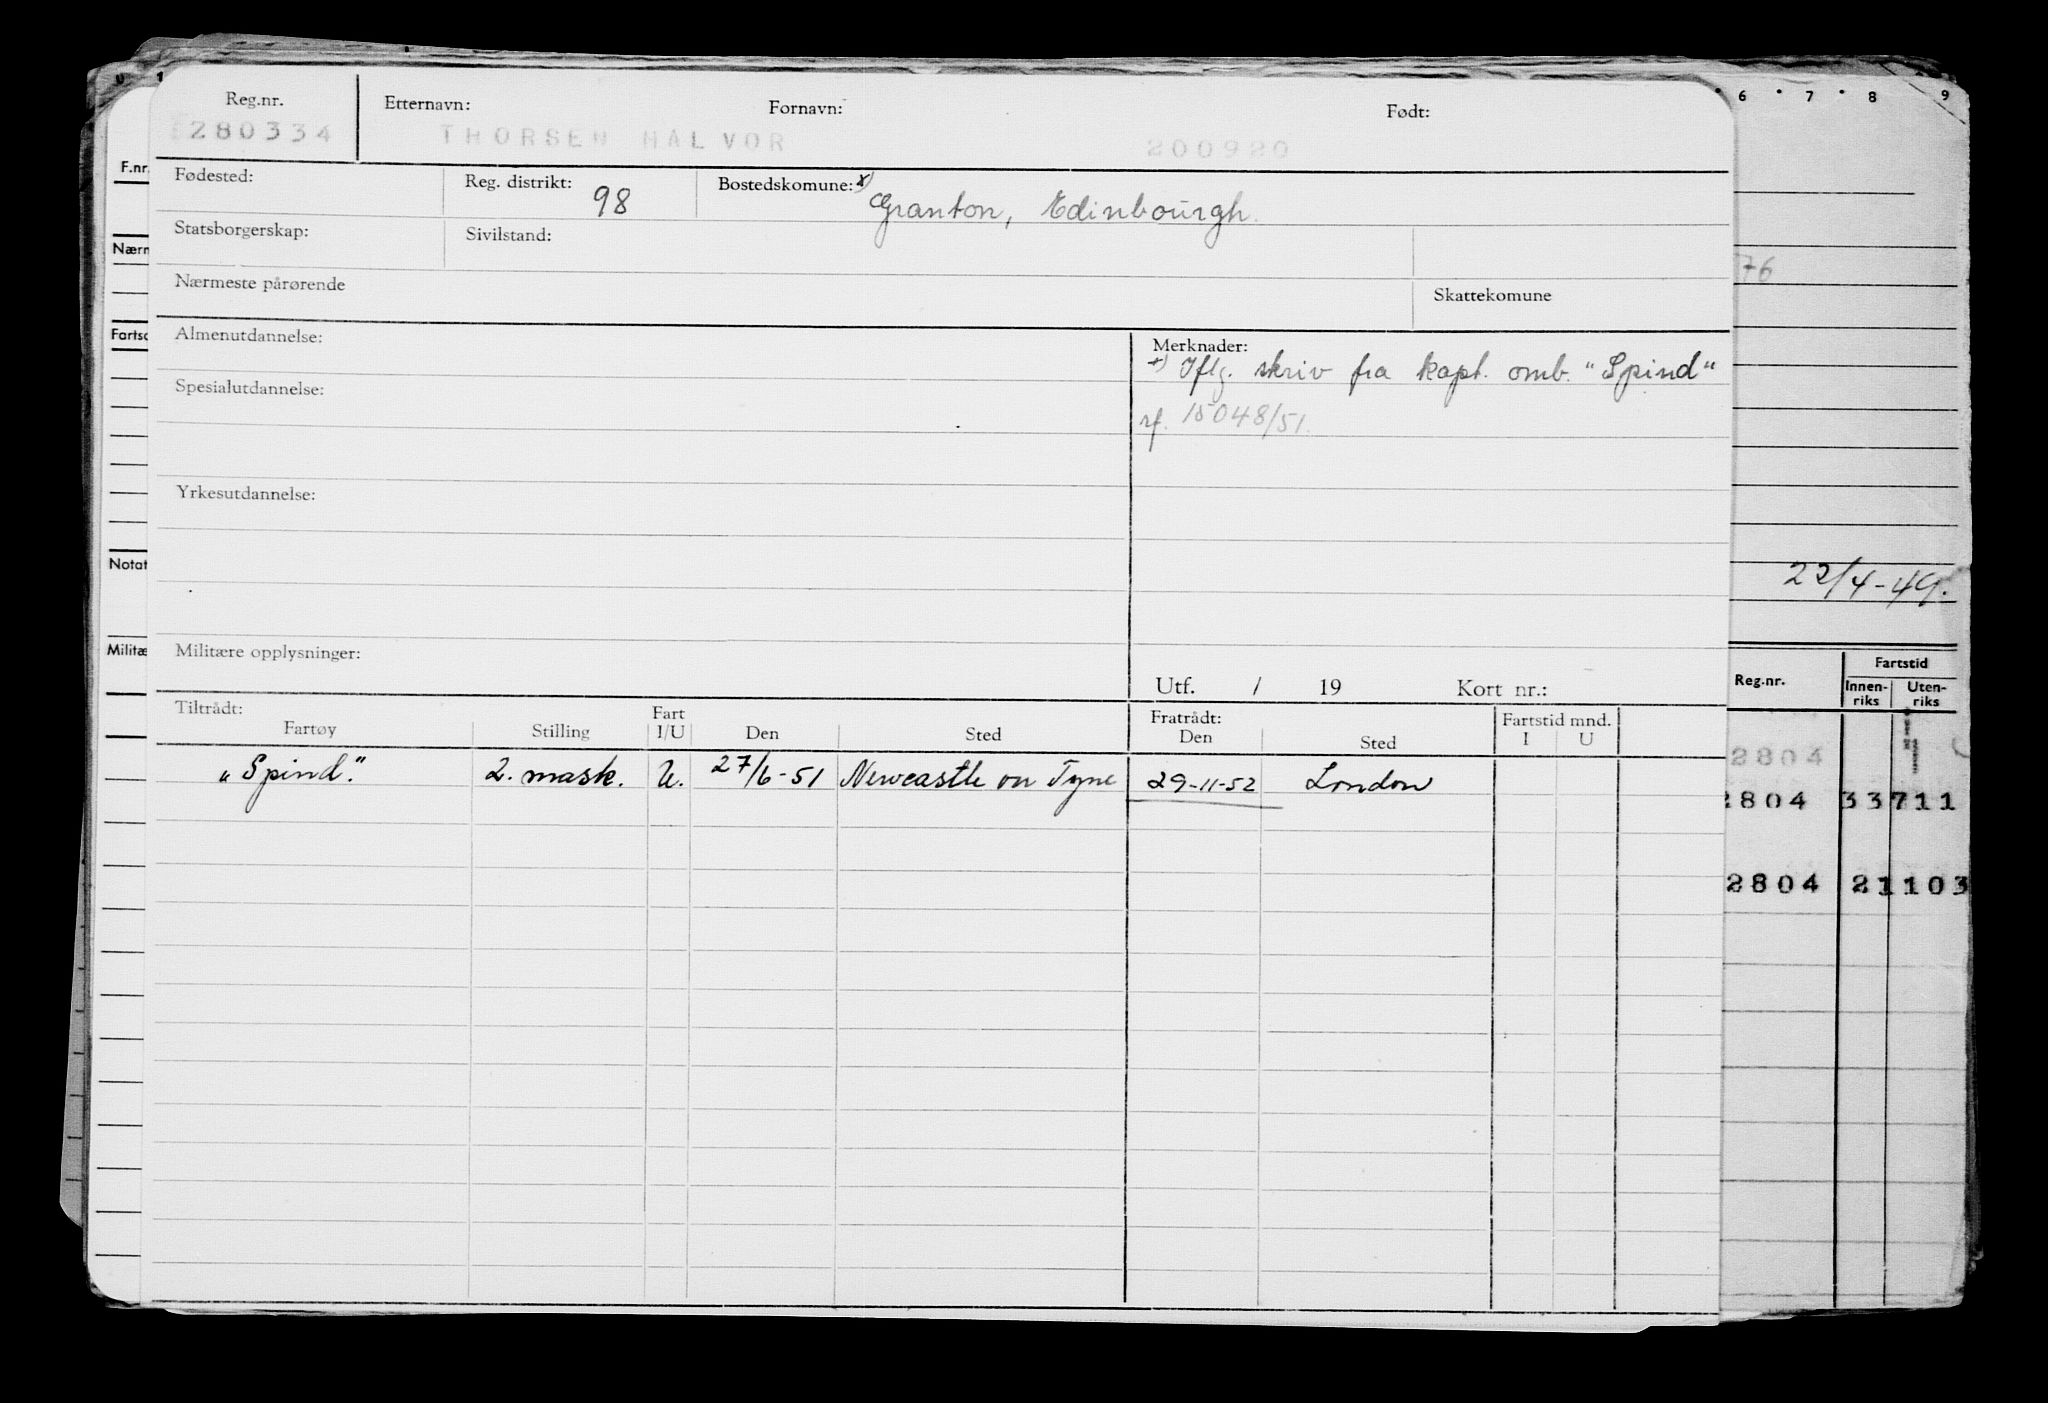 Reg.nr. Etternavn: Fornavn: Født:
280334 THORSEN HALVOR 200920
Fødested: Reg. distrikt: 98 Bostedskomune: x) Granton, Edinbourgh.
Statsborgerskap: Sivilstand:
Nærmeste pårørende Skattekomune
Almenutdannelse: Merknader:
x) Iflg. skriv fra kapt. omb. "Spind"
Spesialutdannelse:
rf. 15048/51.
Yrkesutdannelse:
Militære opplysninger:
Utf. / 19 Kort nr.:
Tiltrådt: Fart Fratrådt: Fartstid mnd.
Fartøy Stilling I/U Den Sted Den Sted I U
"Spind." 2. mask. U. 27/6-51 Newcastle on Tyne 29-11-52 London
F.nr.
Nærm
Fartso
Notat
Militæ
6 7 8 9
76
22/4-49.
Reg.nr. Fartstid
Innen-riks Uten-riks
2804
2804 33711
2804 21103